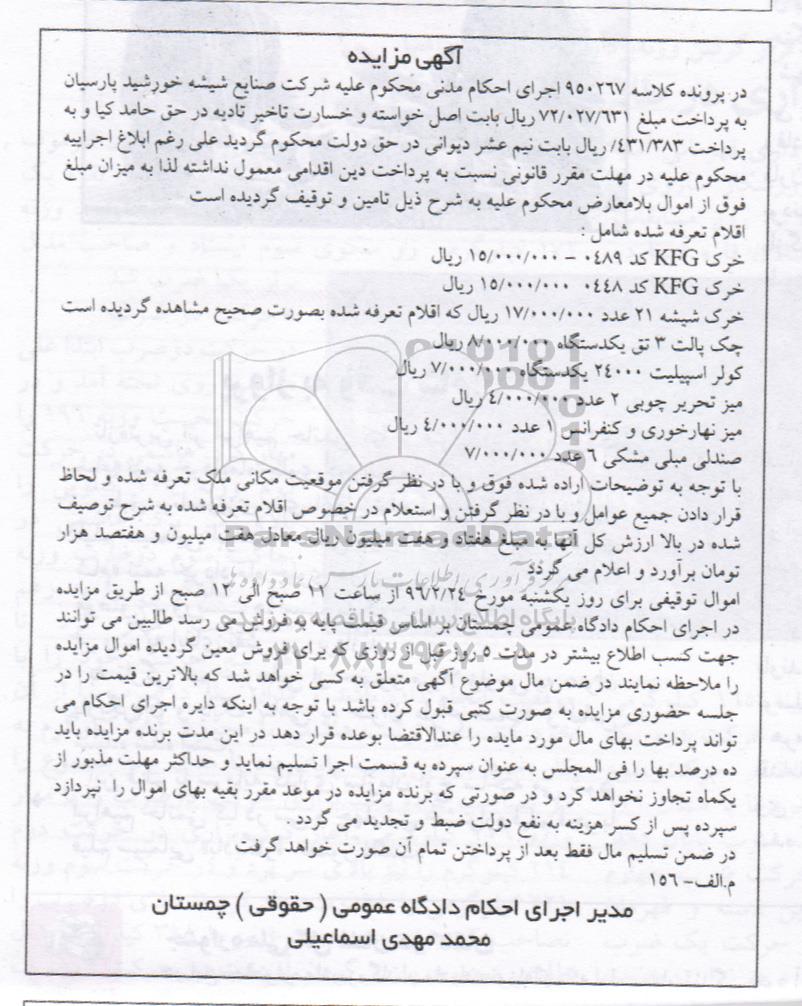 آگهی مزایده
در پرونده کلاسه ۹۵۰۲۶۷ اجرای احکام مدنی محکوم علیه شرکت صنایع شیشه خورشید پارسیان
به پرداخت مبلغ ۷۲/۰۲۷/۶۳۱ ریال بابت اصل خواسته و خسارت تاخیر تادیه در حق حامد کیا و به
پرداخت ۴۳۱/۳۸۳/ ریال بابت نیم عشر دیوانی در حق دولت محکوم گردید علی رغم ابلاغ اجراییه
محکوم علیه در مهلت مقرر قانونی نسبت به پرداخت دین اقدامی معمول نداشته لذا به میزان مبلغ
فوق از اموال بلامعارض محکوم علیه به شرح ذیل تامین و توقیف گردیده است
اقلام تعرفه شده شامل :
خرک KFG کد ۰۴۸۹ – ۱۵/۰۰۰/۰۰۰ ریال
خرک KFG کد ۰۴۴۸ ۱۵/۰۰۰/۰۰۰ ریال
خرک شیشه ۲۱ عدد ۱۷/۰۰۰/۰۰۰ ریال که اقلام تعرفه شده بصورت صحیح مشاهده گردیده است
چک پالت ۳ تق یکدستگاه ۸/۰۰۰/۰۰۰ ریال
کولر اسپیلیت ۲۴۰۰۰ یکدستگاه ۷/۰۰۰/۰۰۰ ریال
میز تحریر چوبی ۲ عدد ۴/۰۰۰/۰۰۰ ریال
میز نهارخوری و کنفرانس ۱ عدد ۴/۰۰۰/۰۰۰ ریال
صندلی مبلی مشکی ۶ عدد ۷/۰۰۰/۰۰۰
با توجه به توضیحات اراده شده فوق و با در نظر گرفتن موقعیت مکانی ملک تعرفه شده و لحاظ
قرار دادن جمیع عوامل و با در نظر گرفتن و استعلام در خصوص اقلام تعرفه شده به شرح توصیف
شده در بالا ارزش کل آنها به مبلغ هفتاد و هفت میلیون ریال معادل هفت میلیون و هفتصد هزار
تومان برآورد و اعلام می گردد
اموال توقیفی برای روز یکشنبه مورخ ۹۶/۲/۲۴ از ساعت ۱۱ صبح الی ۱۲ صبح از طریق مزایده
در اجرای احکام دادگاه عمومی چمستان بر اساس قیمت پایه به فروش می رسد طالبین می توانند
جهت کسب اطلاع بیشتر در مدت ۵ روز قبل از روزی که برای فروش معین گردیده اموال مزایده
را ملاحظه نمایند در ضمن مال موضوع آگهی متعلق به کسی خواهد شد که بالاترین قیمت را در
جلسه حضوری مزایده به صورت کتبی قبول کرده باشد با توجه به اینکه دایره اجرای احکام می
تواند پرداخت بهای مال مورد مایده را عندالاقتضا بوعده قرار دهد در این مدت برنده مزایده باید
ده درصد بها را فی المجلس به عنوان سپرده به قسمت اجرا تسلیم نماید و حداکثر مهلت مذبور از
یکماه تجاوز نخواهد کرد و در صورتی که برنده مزایده در موعد مقرر بقیه بهای اموال را نپردازد
سپرده پس از کسر هزینه به نفع دولت ضبط و تجدید می گردد .
در ضمن تسلیم مال فقط بعد از پرداختن تمام آن صورت خواهد گرفت
م.الف- ۱۵۶
مدیر اجرای احکام دادگاه عمومی ( حقوقی ) چمستان
محمد مهدی اسماعیلی
ParsNamadData